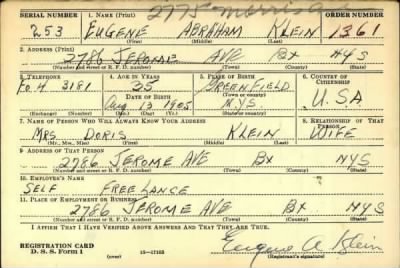 2775 Morris Ave
SERIAL NUMBER 1. NAME (Print) ORDER NUMBER
253 EUGENE ABRAHAM KLEIN 1361
(First) (Middle) (Last)
2. ADDRESS (Print)
2786 JEROME AVE BX NYS
(Number and street or R. F. D. number) (Town) (County) (State)
3. TELEPHONE 4. AGE IN YEARS 5. PLACE OF BIRTH 6. COUNTRY OF CITIZENSHIP
Fo. 4 3181 35 GREENFIELD
DATE OF BIRTH (Town or county)
Aug 13 1905 N.Y.S. U.S.A
(Exchange) (Number) (Mo.) (Day) (Yr.) (State or country)
7. NAME OF PERSON WHO WILL ALWAYS KNOW YOUR ADDRESS 8. RELATIONSHIP OF THAT PERSON
MRS DORIS KLEIN WIFE
(Mr., Mrs., Miss) (First) (Middle) (Last)
9. ADDRESS OF THAT PERSON
2786 JEROME AVE BX NYS
(Number and street or R. F. D. number) (Town) (County) (State)
10. EMPLOYER'S NAME
SELF FREE LANCE
11. PLACE OF EMPLOYMENT OR BUSINESS
2786 JEROME AVE BX NYS
(Number and street or R. F. D. number) (Town) (County) (State)
I AFFIRM THAT I HAVE VERIFIED ABOVE ANSWERS AND THAT THEY ARE TRUE.
REGISTRATION CARD
D. S. S. Form 1 16—17105 Eugene A Klein
(over) (Registrant's signature)